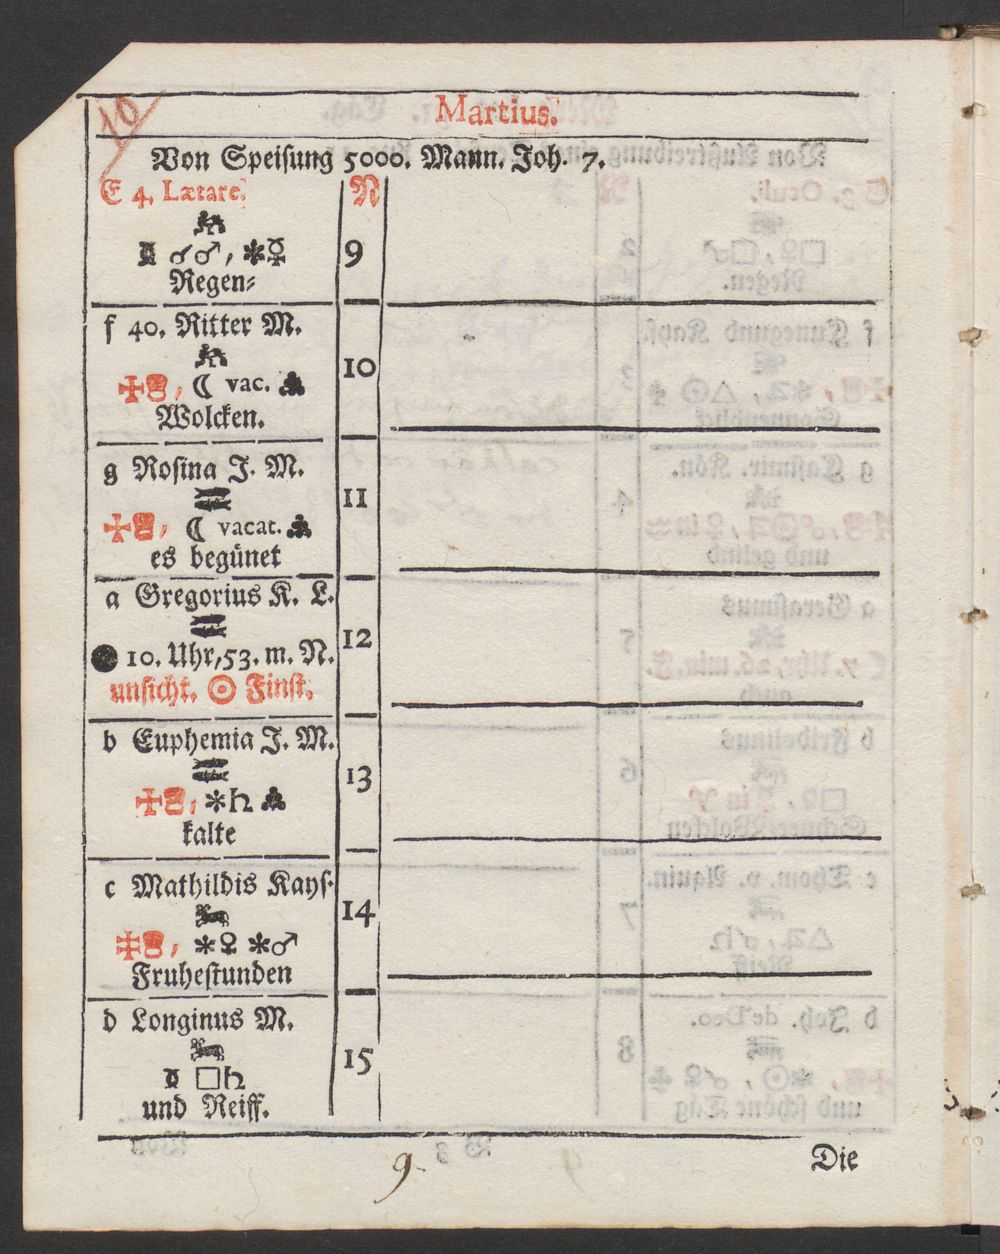 10
Martius.
Von Speisung 5000. Mann. Joh. 7.
E 4. Lætare. N
☌♂, ✱☿ 9
Regen⸗
f 40. Ritter M.
☾ vac. 10
Wolcken.
g Rosina J. M.
☾ vacat. 11
es begünet
a Gregorius K. L.
12
● 10. Uhr, 53. m. N.
unsicht. ☉ Finst.
b Euphemia J. M.
13
✱♄
kalte
c Mathildis Kays.
14
✱♀ ✱♂
Fruhestunden
d Longinus M.
15
□♄
und Reiff.
Die
9